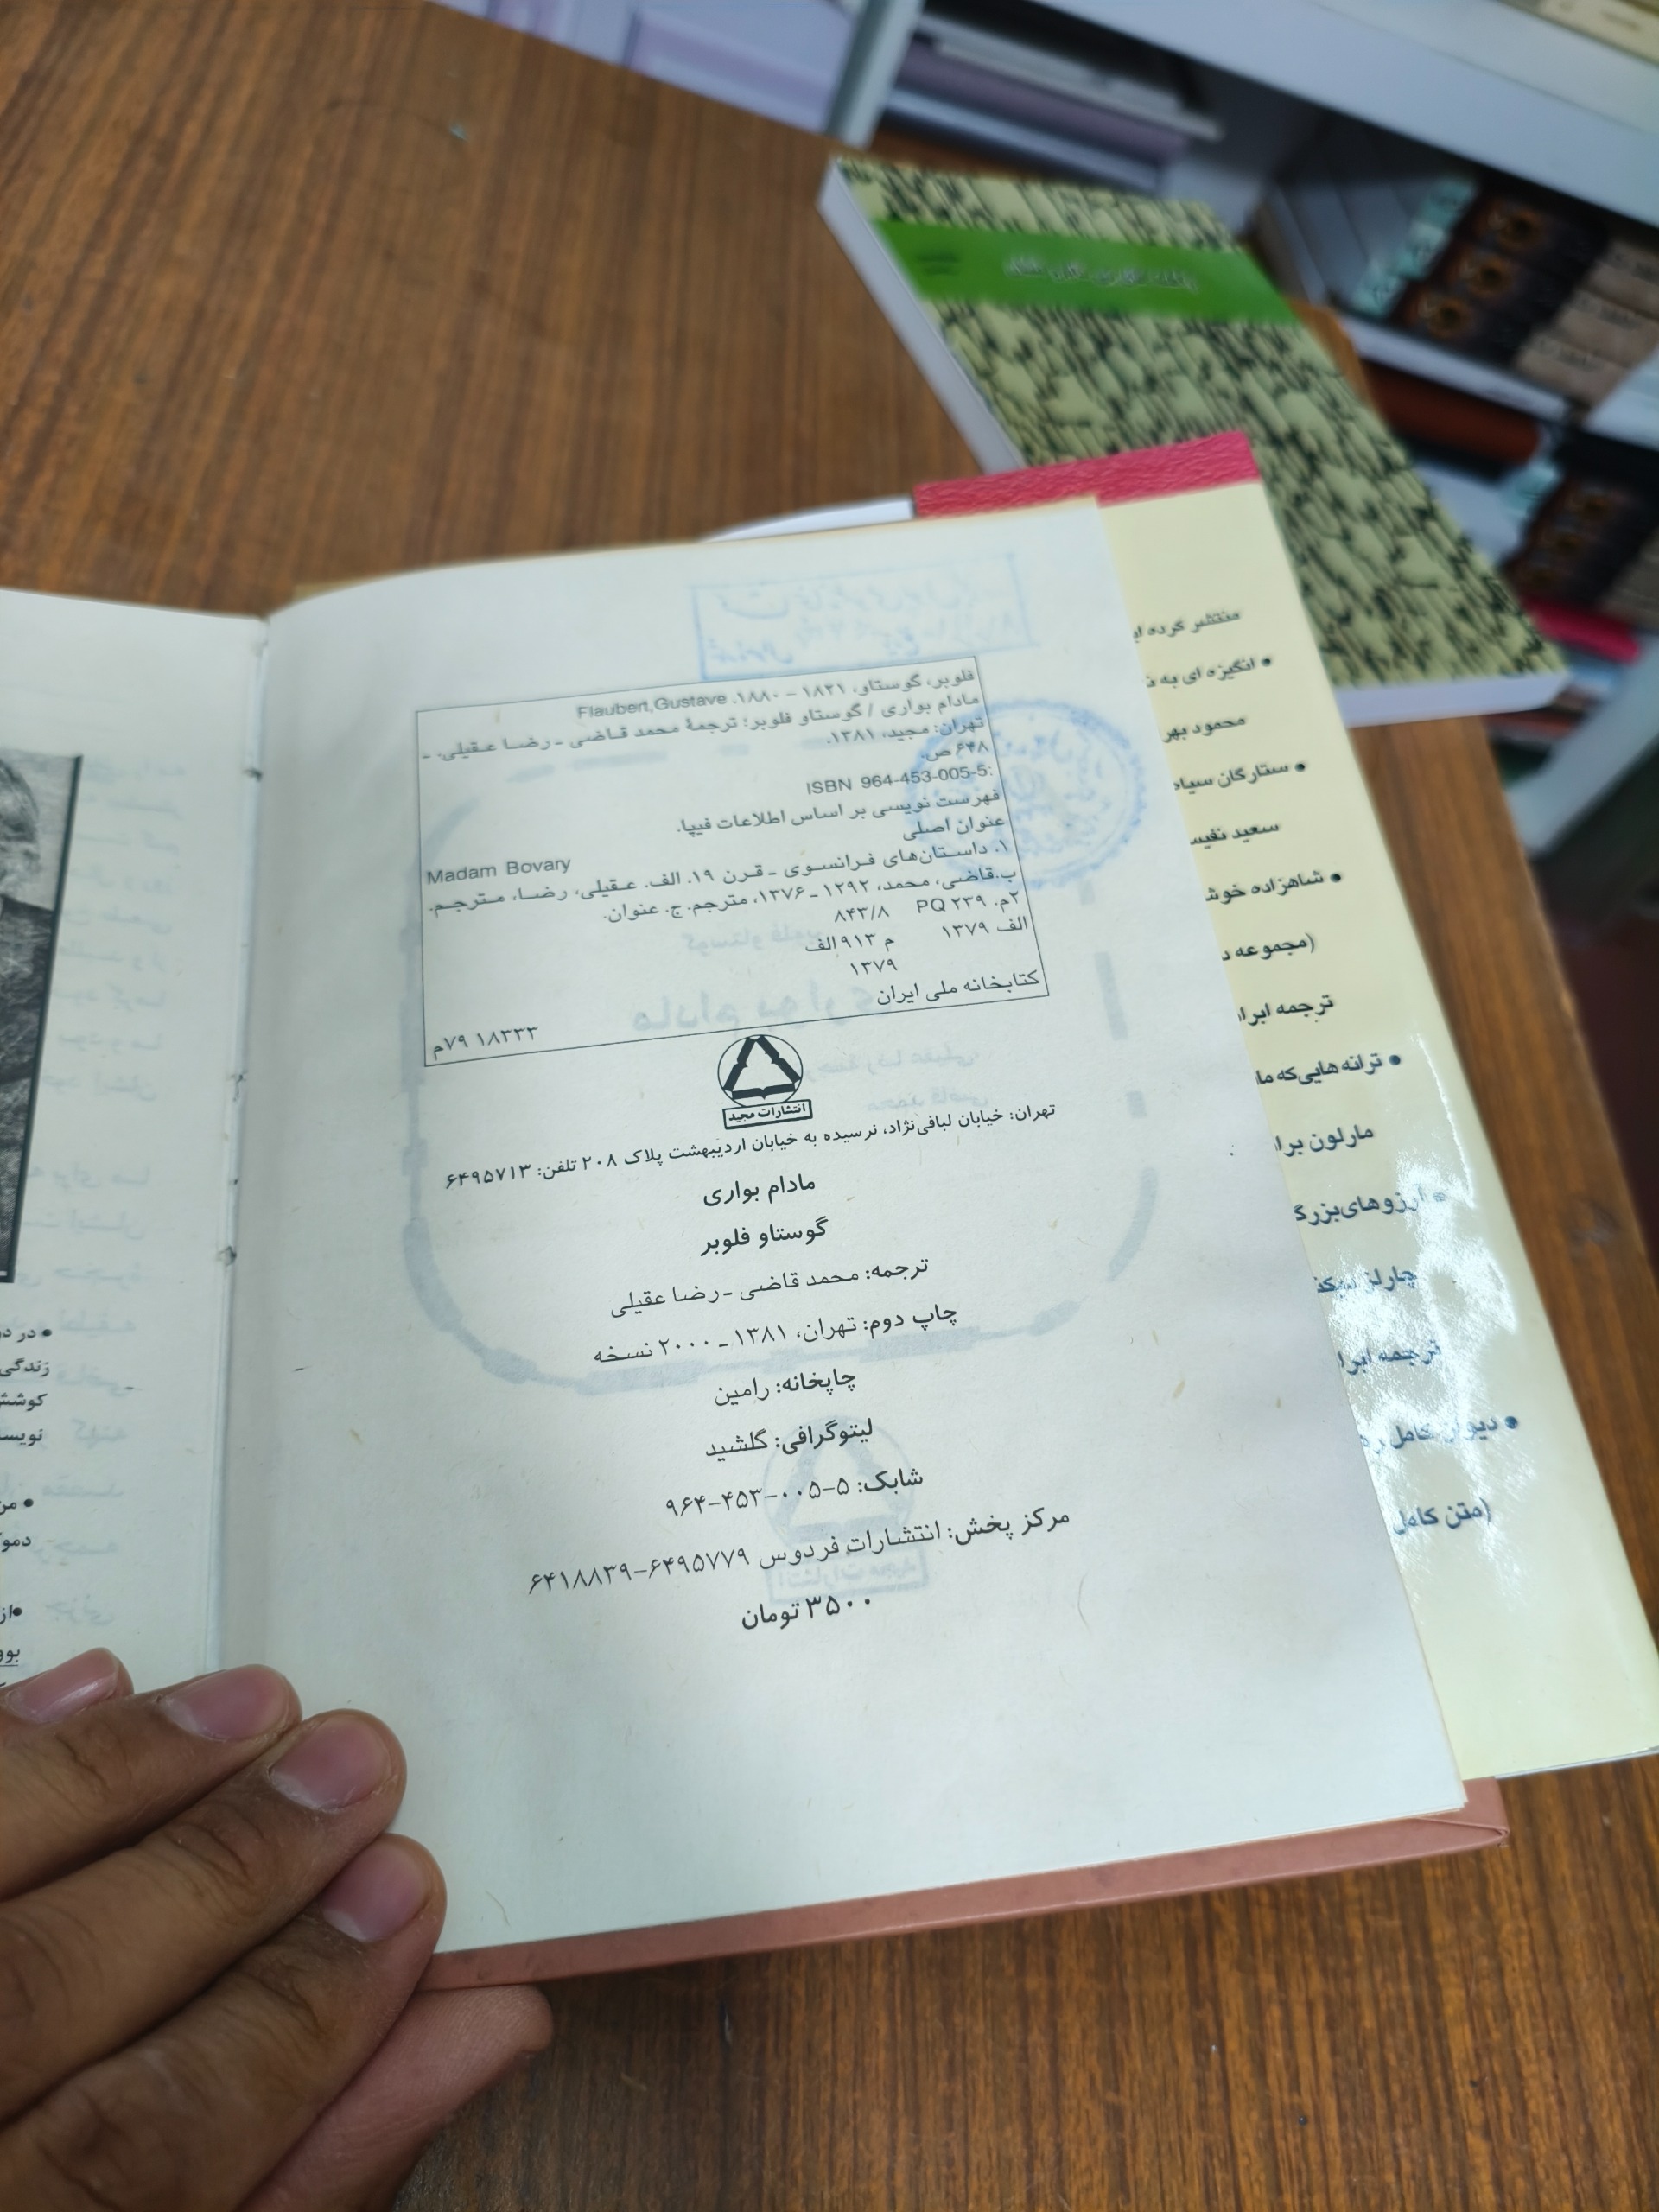 فلوبر، گوستاو، ۱۸۲۱ – ۱۸۸۰. Flaubert,Gustave
مادام بواری / گوستاو فلوبر؛ ترجمهٔ محمد قاضی ـ رضا عقیلی. ـ
تهران: مجید، ۱۳۸۱.
۶۴۸ ص.
ISBN 964-453-005-5:
فهرست نویسی بر اساس اطلاعات فیپا.
عنوان اصلی
Madam Bovary
۱. داستان‌های فرانسوی ـ قرن ۱۹. الف. عقیلی، رضا، مترجم.
ب.قاضی، محمد، ۱۲۹۲ ـ ۱۳۷۶، مترجم. ج. عنوان.
۲م. PQ ۲۳۹ ۸۴۳/۸
الف ۱۳۷۹ م ۹۱۳الف
۱۳۷۹
کتابخانه ملی ایران
۷۹ ۱۸۳۳۳م
انتشارات مجید
تهران: خیابان لبافی‌نژاد، نرسیده به خیابان اردیبهشت پلاک ۲۰۸ تلفن: ۶۴۹۵۷۱۳
مادام بواری
گوستاو فلوبر
ترجمه: محمد قاضی ـ رضا عقیلی
چاپ دوم: تهران، ۱۳۸۱ ـ ۲۰۰۰ نسخه
چاپخانه: رامین
لیتوگرافی: گلشید
شابک: ۵-۰۰۵-۴۵۳-۹۶۴
مرکز پخش: انتشارات فردوس ۶۴۹۵۷۷۹-۶۴۱۸۸۳۹
۳۵۰۰ تومان
منتشر کرده
• انگیزه ای به
محمود
• ستارگان سیاه
سعید
• شاهزاده
(مجموعه
ترجمه
• ترانه هایی‌که
مارلون
• آرزوهای‌بزرگ
چارلز
ترجمه
• دیوان کامل
(متن کامل
• در
زندگی
• من